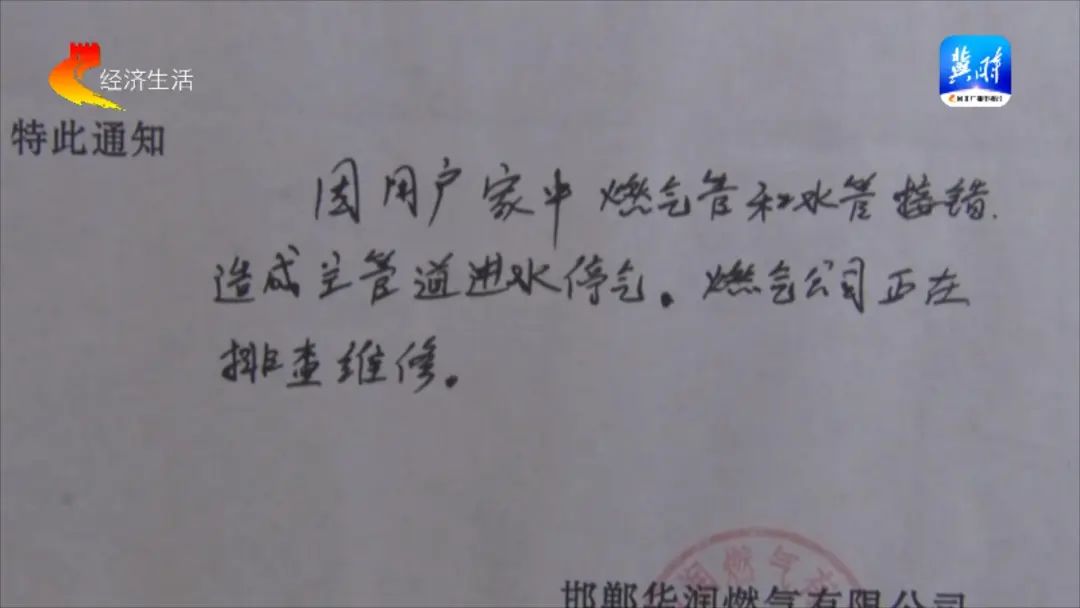 经济生活
冀时
特此通知
因用户家中燃气管和水管接错.
造成主管道进水停气。燃气公司正在
排查维修。
润燃气有
邯郸华润燃气有限公司